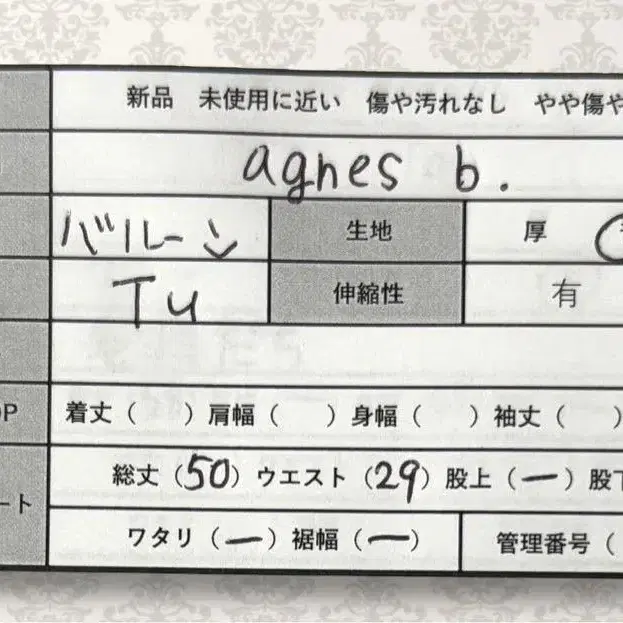 新品 未使用に近い 傷や汚れなし やや傷や
agnes b.
バルーン 生地 厚
Tu 伸縮性 有
OP 着丈( )肩幅( )身幅( )袖丈( )
総丈(50)ウエスト(29)股上(ー)股下
ート
ワタリ(ー)裾幅(ー) 管理番号(